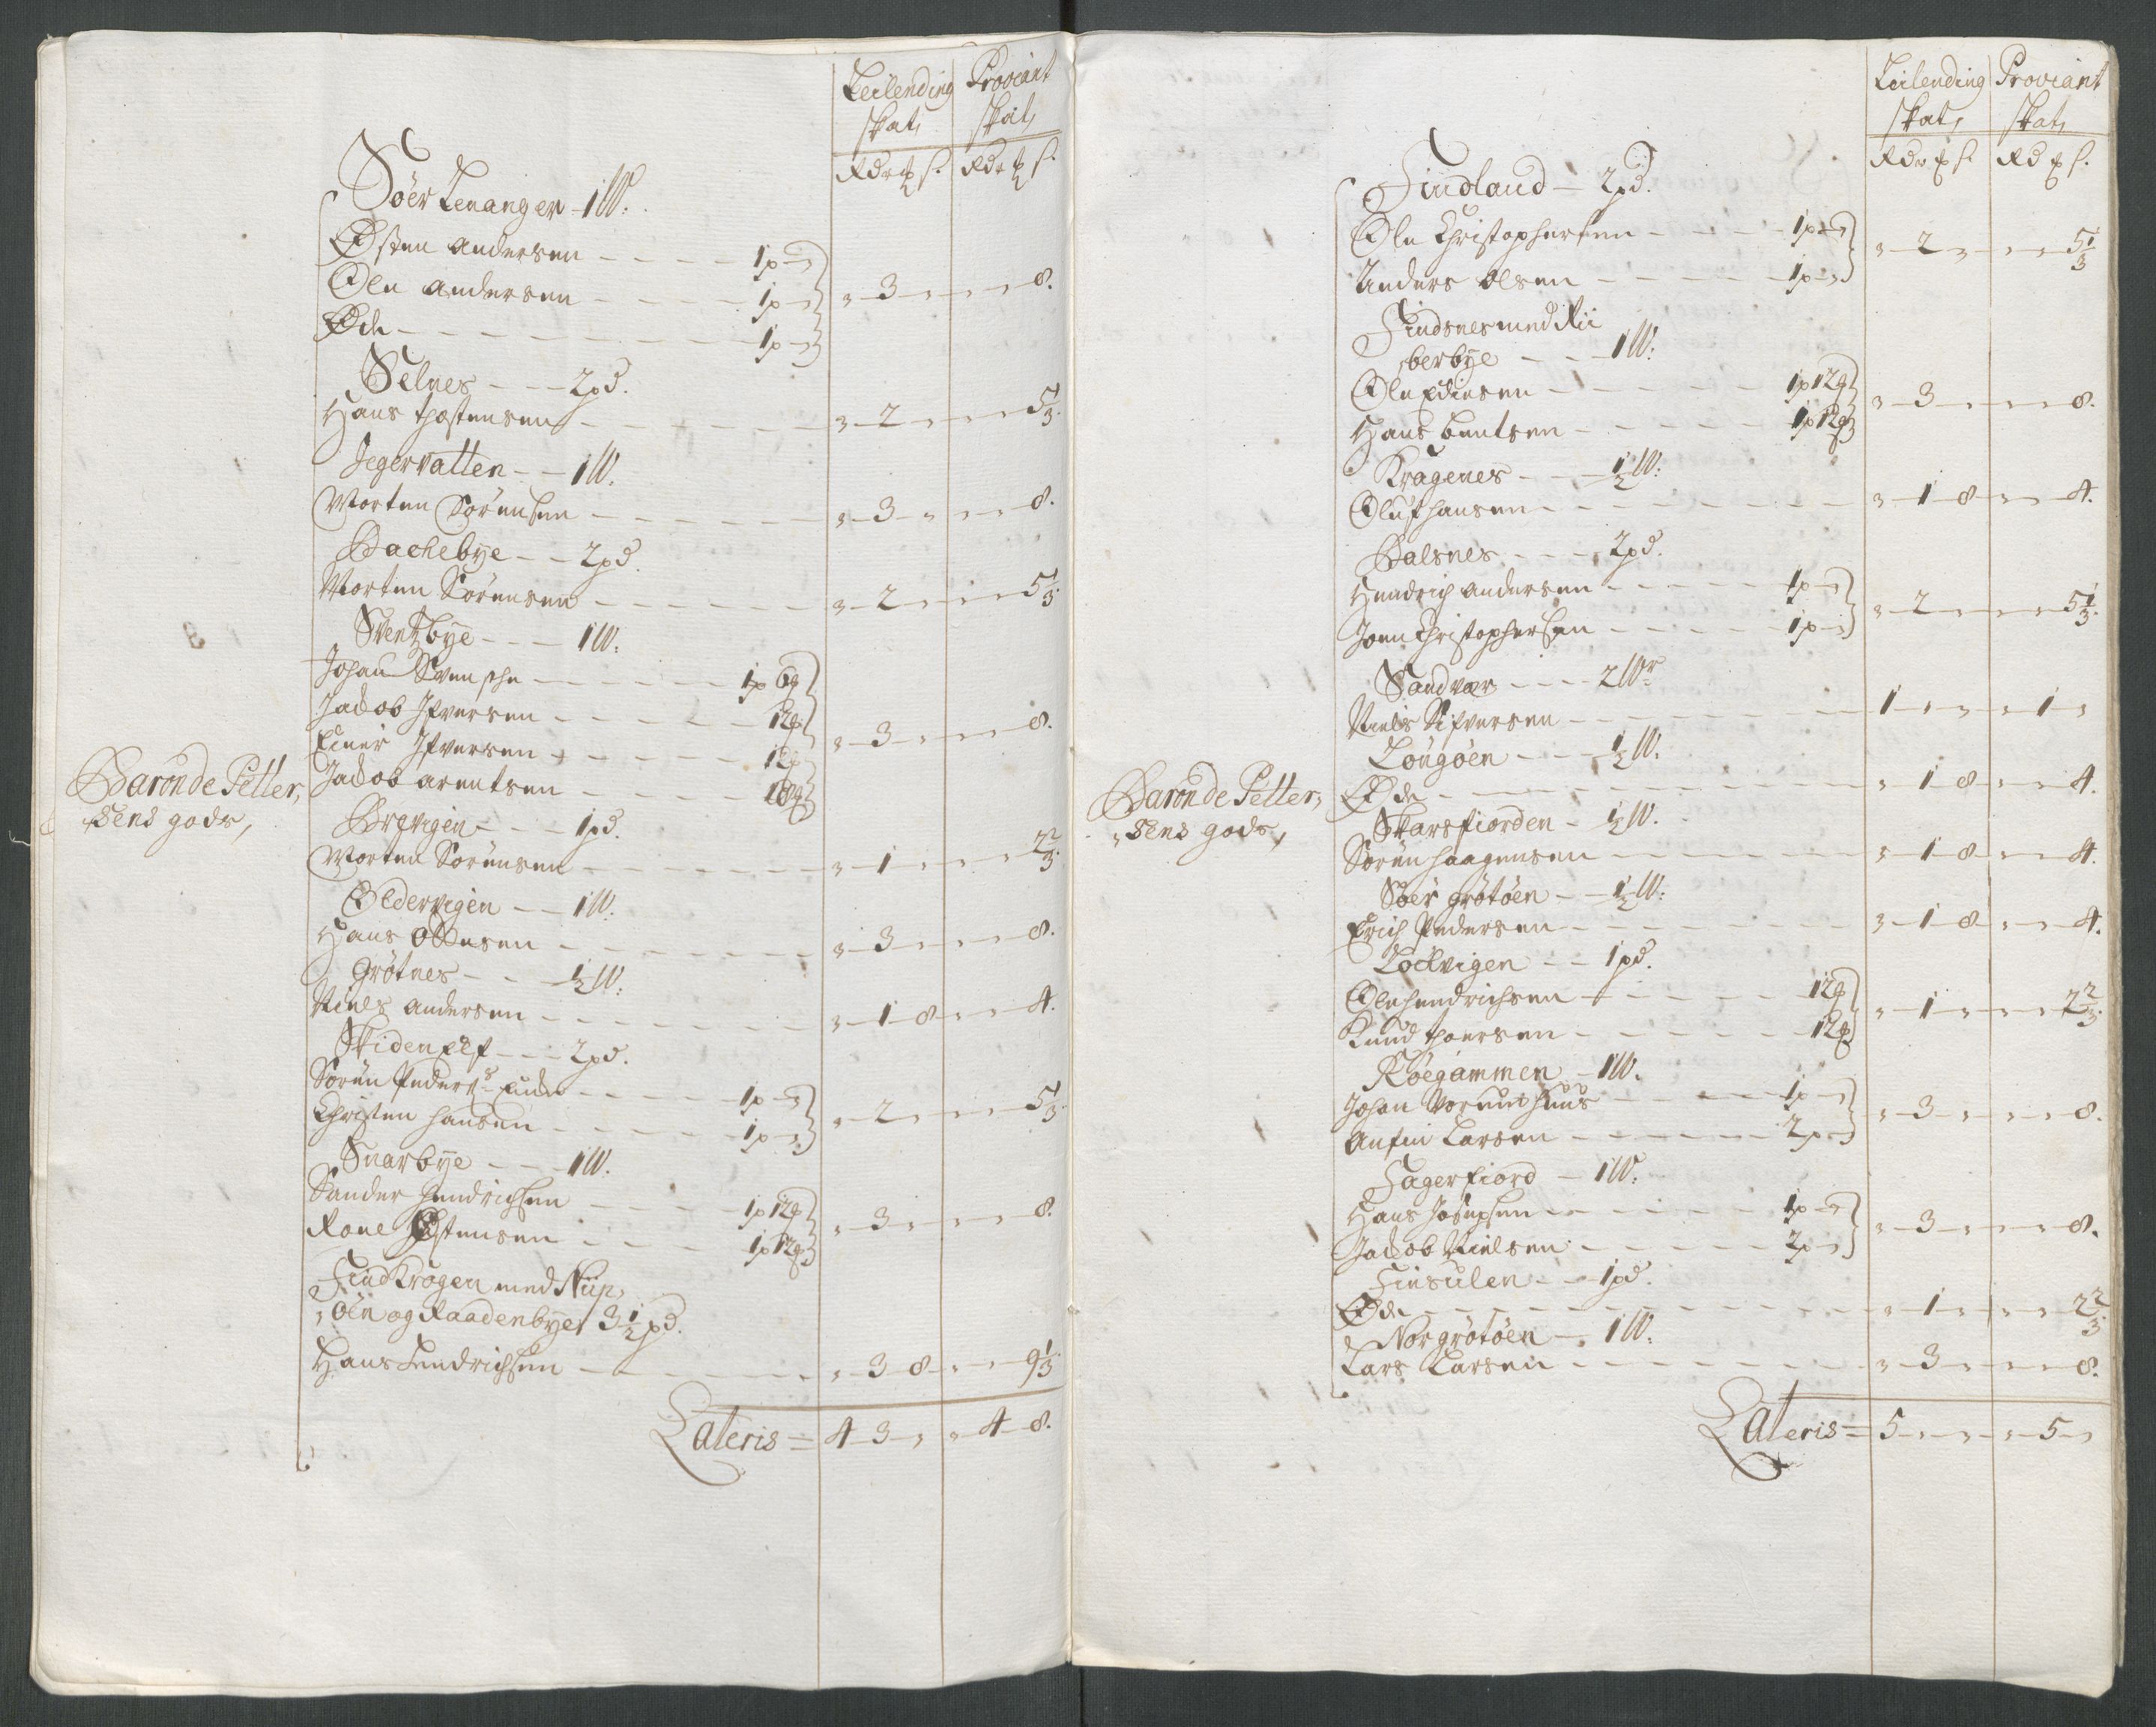 Leilending Proviant
skat, skat,
Rdr ℔ s. Rdr ℔ s.
Søer Lenanger - 1 W:
Østen Andersen - - - - 1p - "
Ole Andersen - - - - 1p - " " - 3 - " " - " - 8.
Øde - - - - - - 1p - "
Selnes - - - 2 pd.
Hans Thostensen - - - - - " - 2 - " " - " - 5 1/3.
Jegervatten - - 1 W.
Morten Sørensen - - - - - " - 3 - " " - " - 8.
Bachebÿe - - 2 pd.
Morten Sørensen - - - - - " - 2 - " " - " - 5 1/3.
Sventzbÿe - - - 1 W:
Johan Svensche - - - - - 1p 6g
Jacob Ifversen - - - - - 12g
Einer Ifversen - - - - - 12g " - 3 - " " - " - 8.
Jacob Arentsen - - - - -
Baron de Petter,
"sens gods,
Brevigen - - - 1 pd.
Morten Sørensen - - - - - " - 1 - " " - " - 2 2/3.
Oldervigen - - 1 W.
Hans Ollesen - - - - - " - 3 - " " - " - 8.
Grøtnes - - - 1/2 W:
Niels Andersen - - - - - " - 1 - 8 " - " - 4.
Skidenelf - - - 2 pd.
Sørren Peders: Enke - - - - 1p - "
Christen Hansen - - - - - 1p - " " - 2 - " " - " - 5 1/3.
Snarbÿe - - - 1 W.
Sander Hendrichsen - - - - 1p 12g
Rone Østensen - - - - 1p 12g " - 3 - " " - " - 8.
Findkrogen med Niip,
"øen og Raadenbÿe, 3 1/2 pd.
Hans Hendrichsen - - - - - " - 3 - 8 " - " - 9 1/3.
Lateris = 4 - 3 - " " - 4 - 8.
Leilending Proviant
skat, skat,
Rdr ℔ s. Rd ℔ s.
Findland - 2 pd.
Ole Christophersen - - - - 1p - "
Anders Olsen - - - - - 1p - " " - 2 - " " - " - 5 1/3
Findsnes med Rii
"berbÿe - - - 1 W:
Ole Ediesen - - - - - 1p 12g
Hans Bentsen - - - - - 1p 12g " - 3 - " " - " - 8.
Kragenes - - - 1/2 W:
Oluf Hansen - - - - - " - 1 - 8 " - " - 4.
Balsnes - - - 2 pd.
Hendrich Andersen - - - - 1p - "
Joen Christophersen - - - - 1p - " " - 2 - " " - " - 5 1/3.
Sandvær - - - 2 Wr
Niels Sifversen - - - - - 1 - " - " " - 1 - "
Longøen - - - 1/2 W.
Øde - - - - - " - 1 - 8 " - " - 4.
Baron de Petter,
"sens gods,
Skarsfiorden - 1/2 W.
Søren Haagensen - - - - - " - 1 - 8 " - " - 4.
Søer Grøtøen - - 1/2 W:
Erich Pedersen - - - - - " - 1 - 8 " - " - 4.
Lochvigen - - 1 pd.
Ole Hendrichsen - - - - - 12g
Knud Thoersen - - - - - 12g " - 1 - " " - " - 2 2/3.
Røegammen - 1 W.
Johan Morumhuus - - - - 1p - "
Anfin Larsen - - - - - 2p - " " - 3 - " " - " - 8.
Fagerfiord - 1 W:
Hans Josepsen - - - - - 1p - "
Jacob Nielsen - - - - - 2p - " " - 3 - " " - " - 8.
Finsulen - - 1 pd.
Øde - - - - - " - 1 - " " - " - 2 2/3.
Norgrøtøen - 1 W.
Lars Larsen - - - - - " - 3 - " " - " - 8.
Lateris = 5 - " - " " - 5 - "